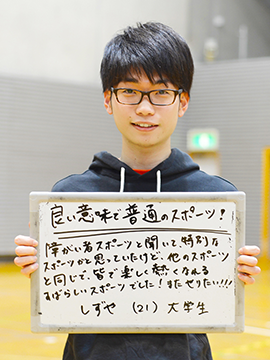 良い意味で普通のスポーツ!
障がい者スポーツと聞いて、特別な
スポーツかと思っていたけど、他のスポーツ
と同じで、皆で楽しく熱くなれる
すばらしいスポーツでした!またやりたい!!!
しずや (21) 大学生